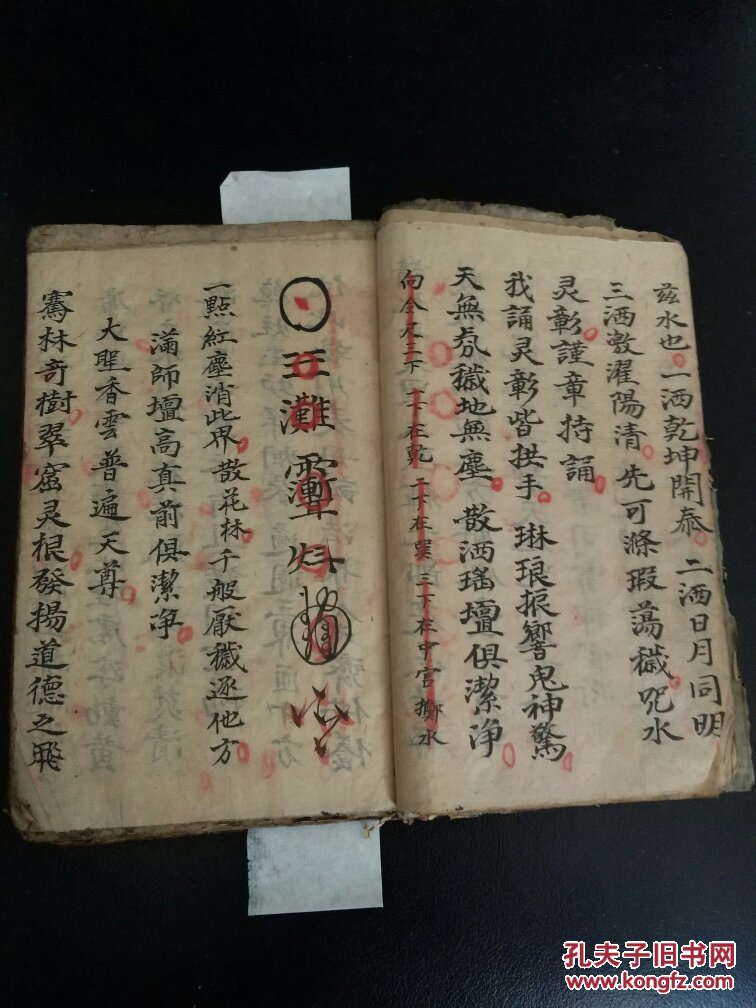 茲水也一洒乾坤開泰 二洒日月同明
三洒敷濯陽清先可滌瑕蕩穢咒水
灵彰謹章持誦
我誦灵彰皆拱手 琳琅振響鬼神驚
天無氛穢地無塵 散洒瑤壇俱潔淨
向 三下 一下在乾 二下在巽 三下在中宮擲水
三灘
一點紅塵消此界散花林千般厭穢逐他方
滿師壇高真前俱潔净
大聖香雲普遍天尊
騫林奇樹翠窟灵根發揚道德之飛
孔夫子旧书网
www.kongfz.com